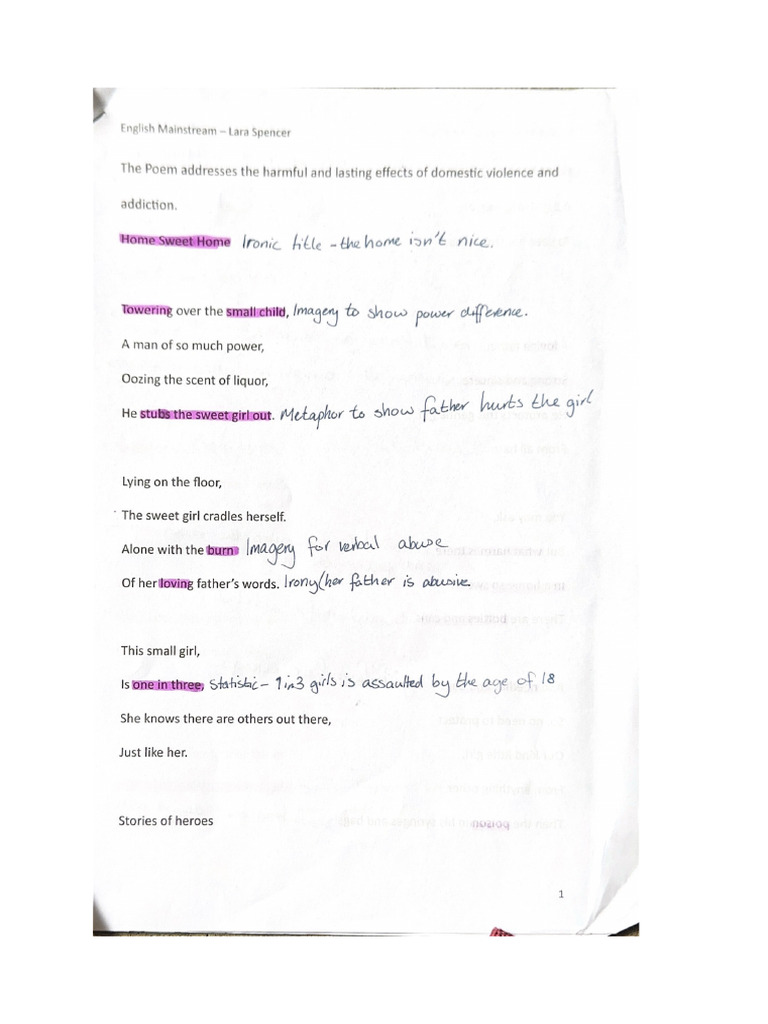 English Mainstream – Lara Spencer
The Poem addresses the harmful and lasting effects of domestic violence and
addiction.
Home Sweet Home Ironic title - the home isn't nice.
Towering over the small child, Imagery to show power difference.
A man of so much power,
Oozing the scent of liquor,
He stubs the sweet girl out. Metaphor to show father hurts the girl
Lying on the floor,
The sweet girl cradles herself.
Alone with the burn Imagery for verbal abuse
Of her loving father's words. Irony (her father is abusive.
This small girl,
Is one in three, Statistic - 1 in 3 girls is assaulted by the age of 18
She knows there are others out there,
Just like her.
Stories of heroes
1